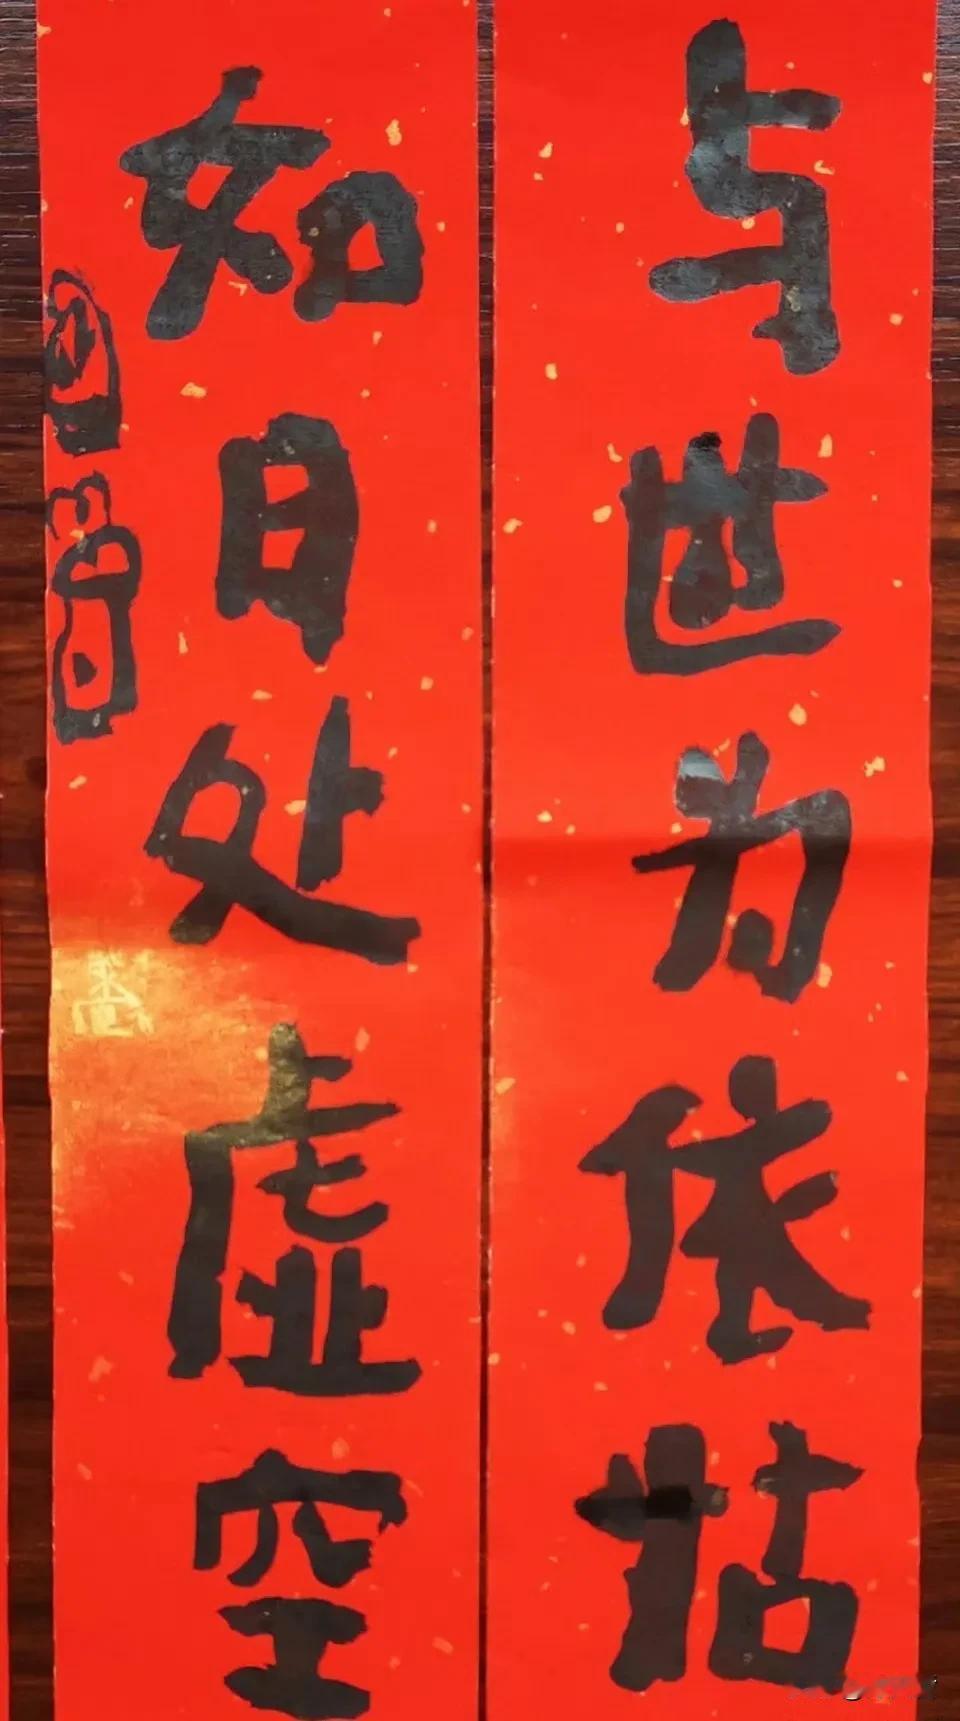 与世为依怙
如日处虚空